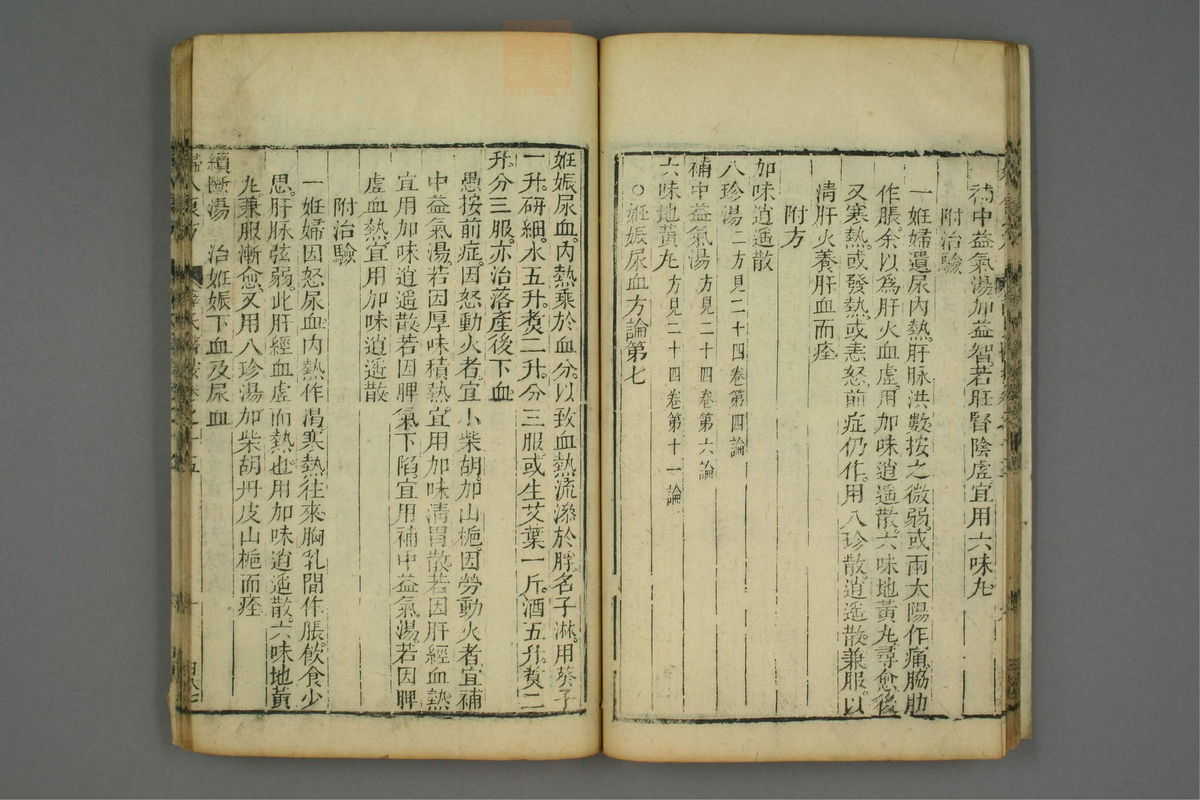 補中益氣湯加益智若肝腎陰虛宜用六味丸
附治驗
一妊婦遺尿內熱肝脉洪數按之微弱或兩太陽作痛脇肋
作脹余以爲肝火血虛用加味逍遥散六味地黃丸尋愈後
又寒熱或發熱或恚怒前症仍作用八珍散逍遥散兼服以
清肝火養肝血而痊
附方
加味逍遥散
八珍湯二方見二十四卷第四論
補中益氣湯方見二十四卷第六論
六味地黃丸方見二十四卷第十一論
○妊娠尿血方論第七
妊娠尿血內熱乘於血分以致血熱流滲於脬名子淋用葵子
一升研細水五升煑二升分三服或生艾葉一斤酒五升煑二
升分三服亦治落產後下血
愚按前症因怒動火者宜小柴胡加山梔因勞動火者宜補
中益氣湯若因厚味積熱宜用加味清胃散若因肝經血熱
宜用加味逍遥散若因脾氣下陷宜用補中益氣湯若因脾
虛血熱宜用加味逍遥散
附治驗
一妊婦因怒尿血內熱作渴寒熱往來胸乳間作脹飲食少
思肝脉弦弱此肝經血虛而熱也用加味逍遥散六味地黃
丸兼服漸愈又用八珍湯加柴胡丹皮山梔而痊
續斷湯 治妊娠下血及尿血